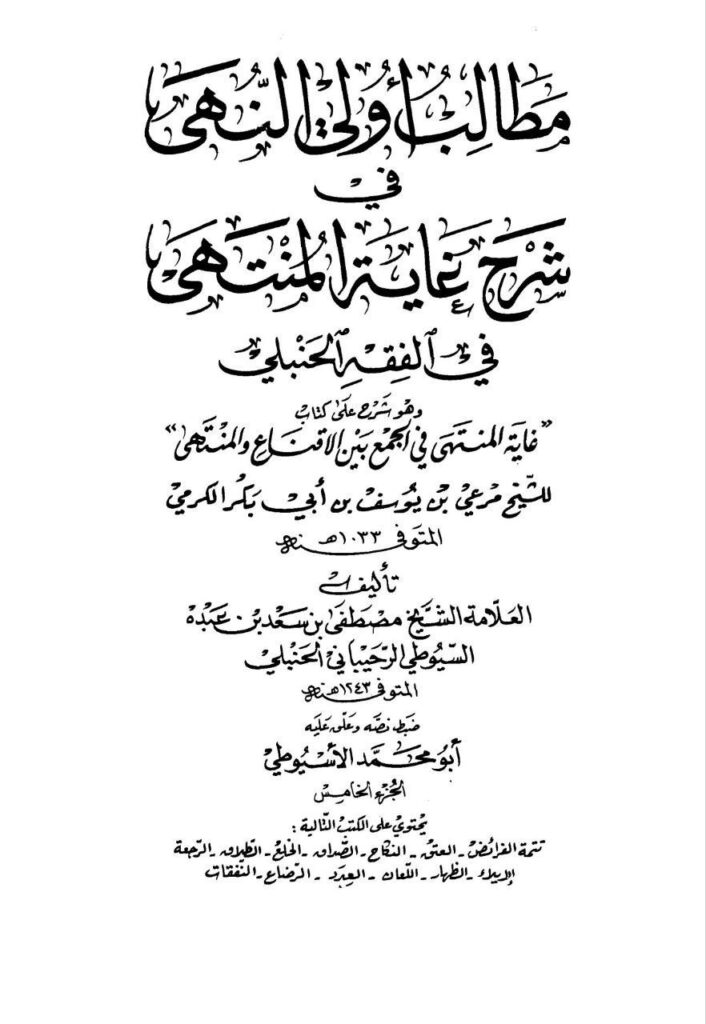 مَطَالِبُ أُولِي النُّهَى
فِي
شَرْحِ غَايَةِ المُنْتَهَى
فِي الفِقْهِ الحَنْبَلِي
وهو شرح على كتاب
"غاية المنتهى في الجمع بين الاقناع والمنتهى"
للشيخ مرعي بن يوسف بن أبي بكر الكرمي
المتوفى ١٠٣٣هـ سنة
تأليف
العلّامة الشيخ مصطفى بن سعد بن عبده
السيوطي الرحيباني الحنبلي
المتوفى ١٢٤٣هـ سنة
ضبط نصّه وعلّق عليه
أبو محمد الأسيوطي
الجزء الخامس
يحتوي على الكتب التالية:
تتمة الفرائض - العتق - النكاح - الصّداق - الخلع - الطّلاق - الرّجعة
الإيلاء - الظهار - اللّعان - العِدد - الرّضاع - النّفقات